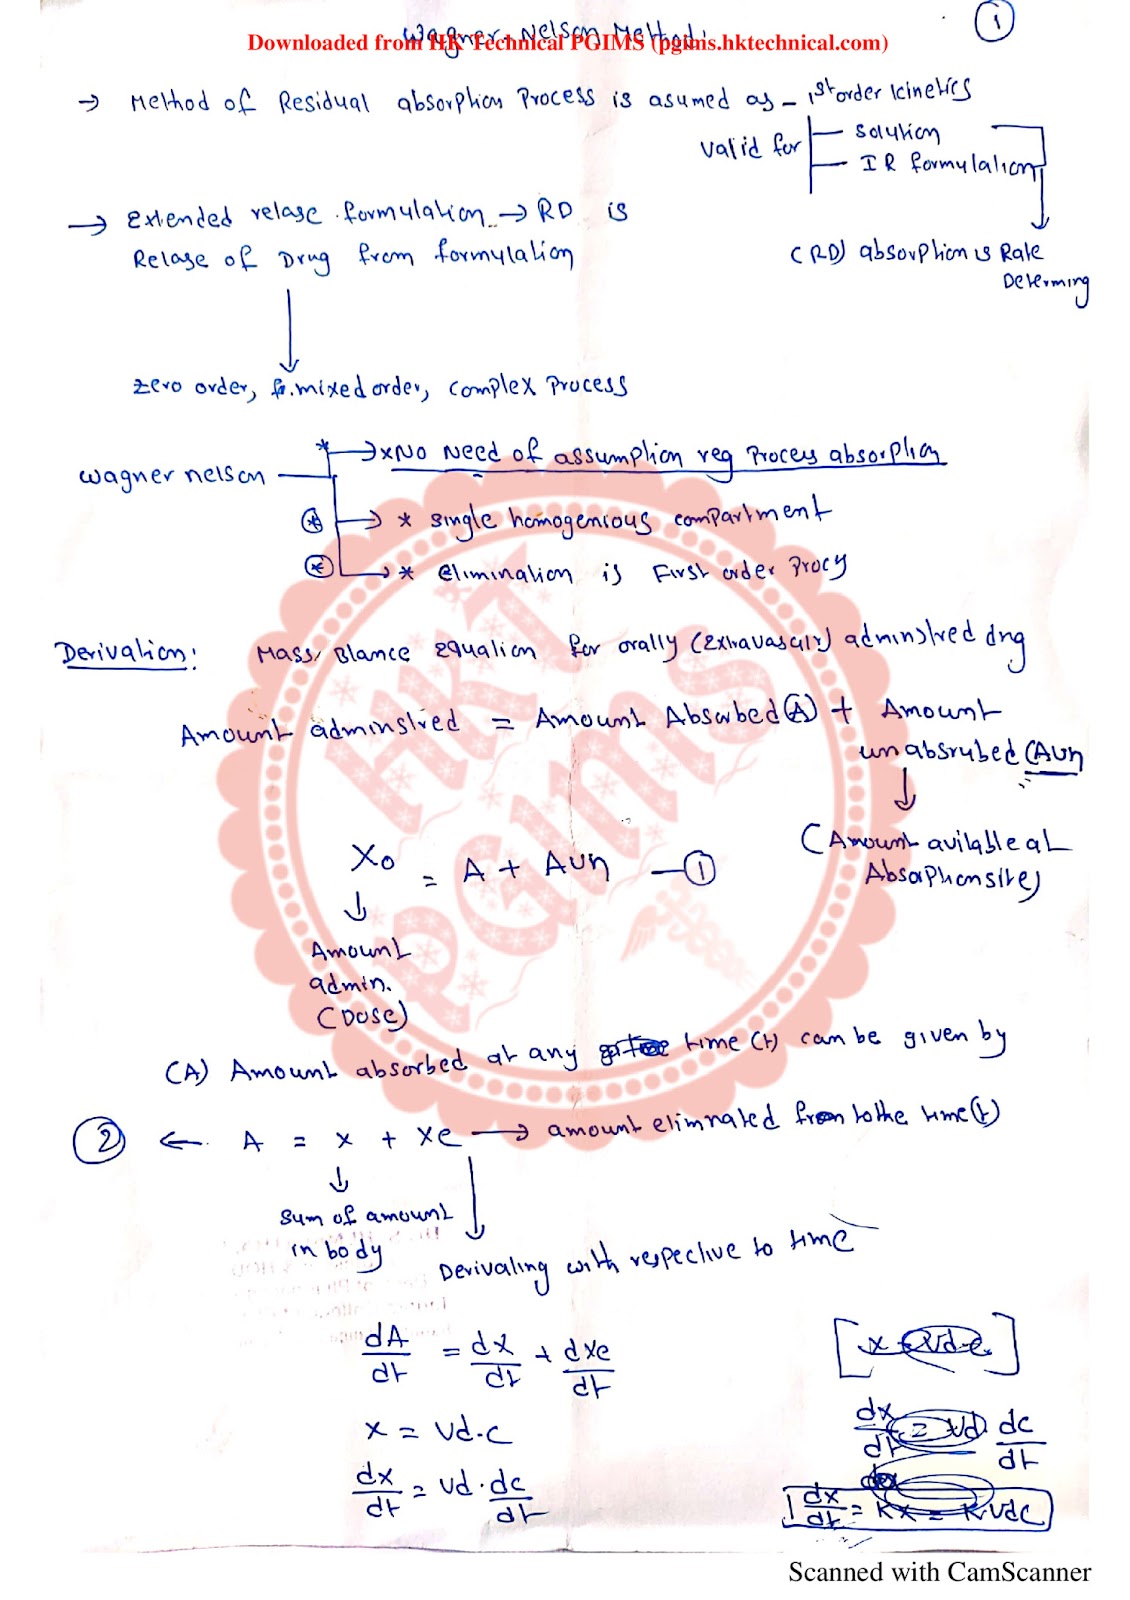 Wagner-Nelson Method:
Downloaded from HK Technical PGIMS (pgims.hktechnical.com)
1
→ Method of Residual absorption Process is asumed as - 1st order kinetics
valid for
solution
IR formulation
(RD) absorption is Rate
Determing
→ Extended relase formulation → RD is
Relase of Drug from formulation
zero order, mixed order, complex process
wagner nelson
* → * No Need of assumption reg Process absorption
* → * single homogenious compartment
* → * elimination is First order Procy
Derivation: Mass Blance equation for orally (Extravasculr) adminstred drug
Amount adminstred = Amount Absorbed (A) + Amount
unabsrubed (Aun
(Amount avilable at
Absorphonsite)
X₀ = A + Aun — 1
Amount
admin.
(Dose)
(A) Amount absorbed at any time (t) can be given by
2 ← A = x + xe → amount elimnated from to the time (t)
sum of amount
in body
Derivating with respective to time
dA/dt = dx/dt + dxe/dt
x = Vd.C
dx/dt = Vd.dc/dt
[x = Vd-c]
dx/dt = Vd dc/dt
dx/dt = Kx = K.VdC
HKT
PGIMS
Scanned with CamScanner